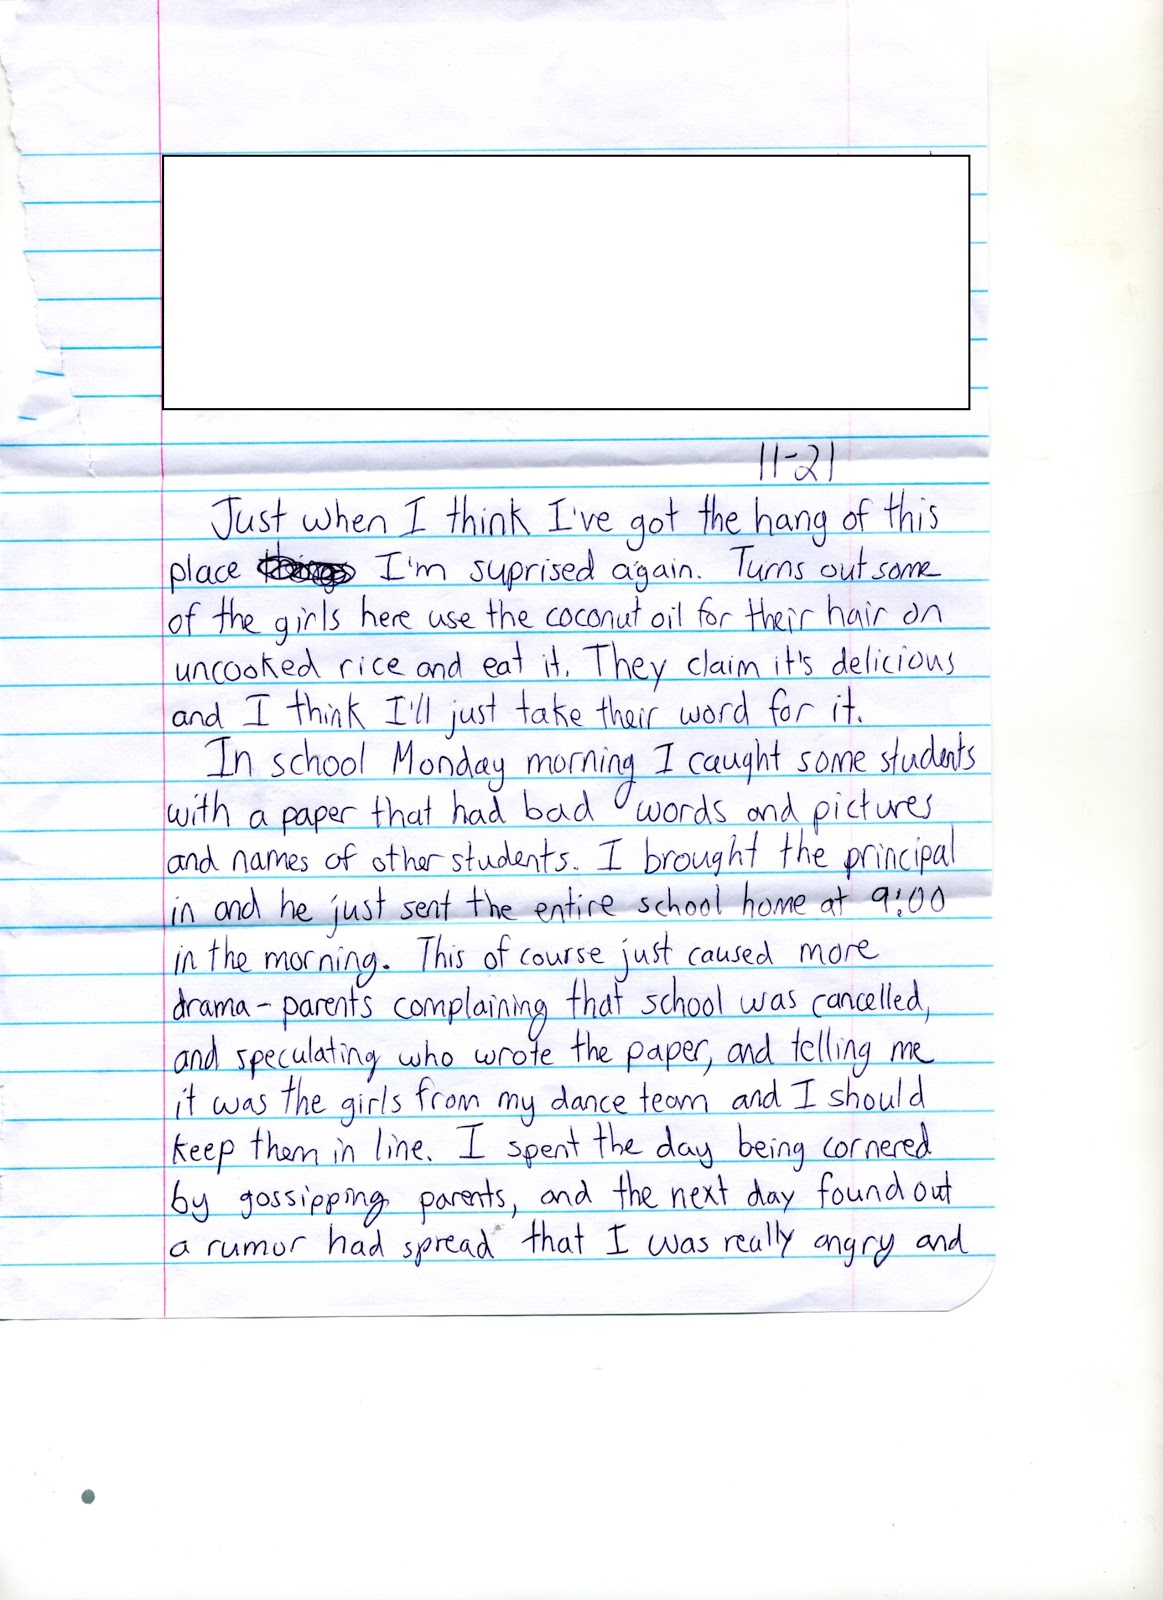 11-21
Just when I think I've got the hang of this
place I'm suprised again. Turns out some
of the girls here use the coconut oil for their hair on
uncooked rice and eat it. They claim it's delicious
and I think I'll just take their word for it.
In school Monday morning I caught some students
with a paper that had bad words and pictures
and names of other students. I brought the principal
in and he just sent the entire school home at 9:00
in the morning. This of course just caused more
drama - parents complaining that school was cancelled,
and speculating who wrote the paper, and telling me
it was the girls from my dance team and I should
keep them in line. I spent the day being cornered
by gossipping parents, and the next day found out
a rumor had spread that I was really angry and